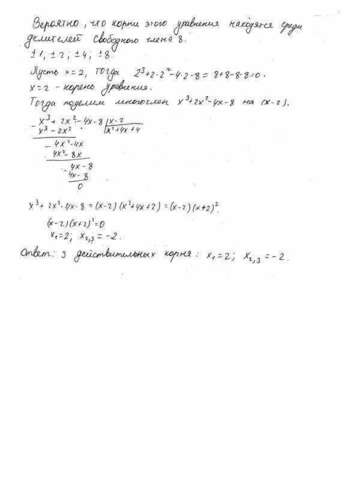 Вероятно, что корни этого уравнения находятся среди
делителей свободного члена 8.
±1, ±2, ±4, ±8.
Пусть x=2, тогда 2³+2·2²-4·2-8=8+8-8-8=0.
x=2 - корень уравнения.
Тогда поделим многочлен x³+2x²-4x-8 на (x-2).
- x³+2x²-4x-8 | x-2
x³-2x² x²+4x+4
- 4x²-4x
4x²-8x
- 4x-8
4x-8
0
x³+2x²-4x-8=(x-2)(x²+4x+4)=(x-2)(x+2)².
(x-2)(x+2)²=0
x₁=2; x₂,₃=-2.
Ответ: 3 действительных корня: x₁=2; x₂,₃=-2.